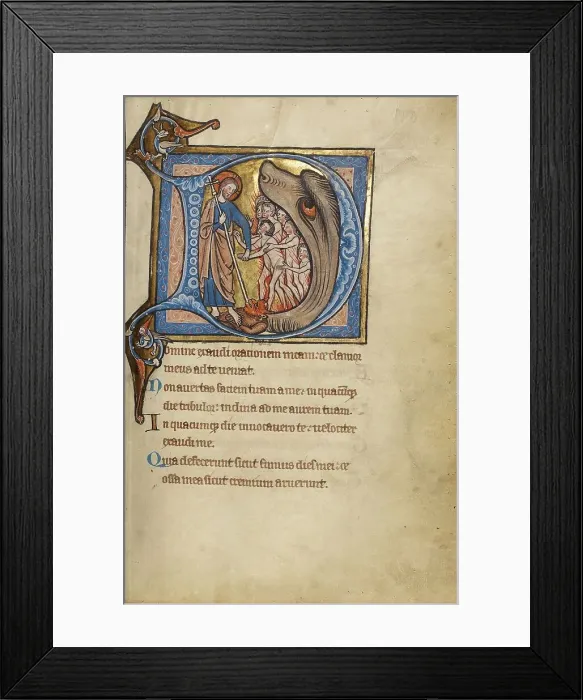 Domine exaudi orationem meam: et clamor
meus ad te veniat.
Non avertas faciem tuam a me: in quacūq;
die tribulor: inclina ad me aurem tuam.
In quacumq; die invocavero te: velociter
exaudi me.
Quia defecerunt sicut fumus dies mei: et
ossa mea sicut cremium aruerunt.